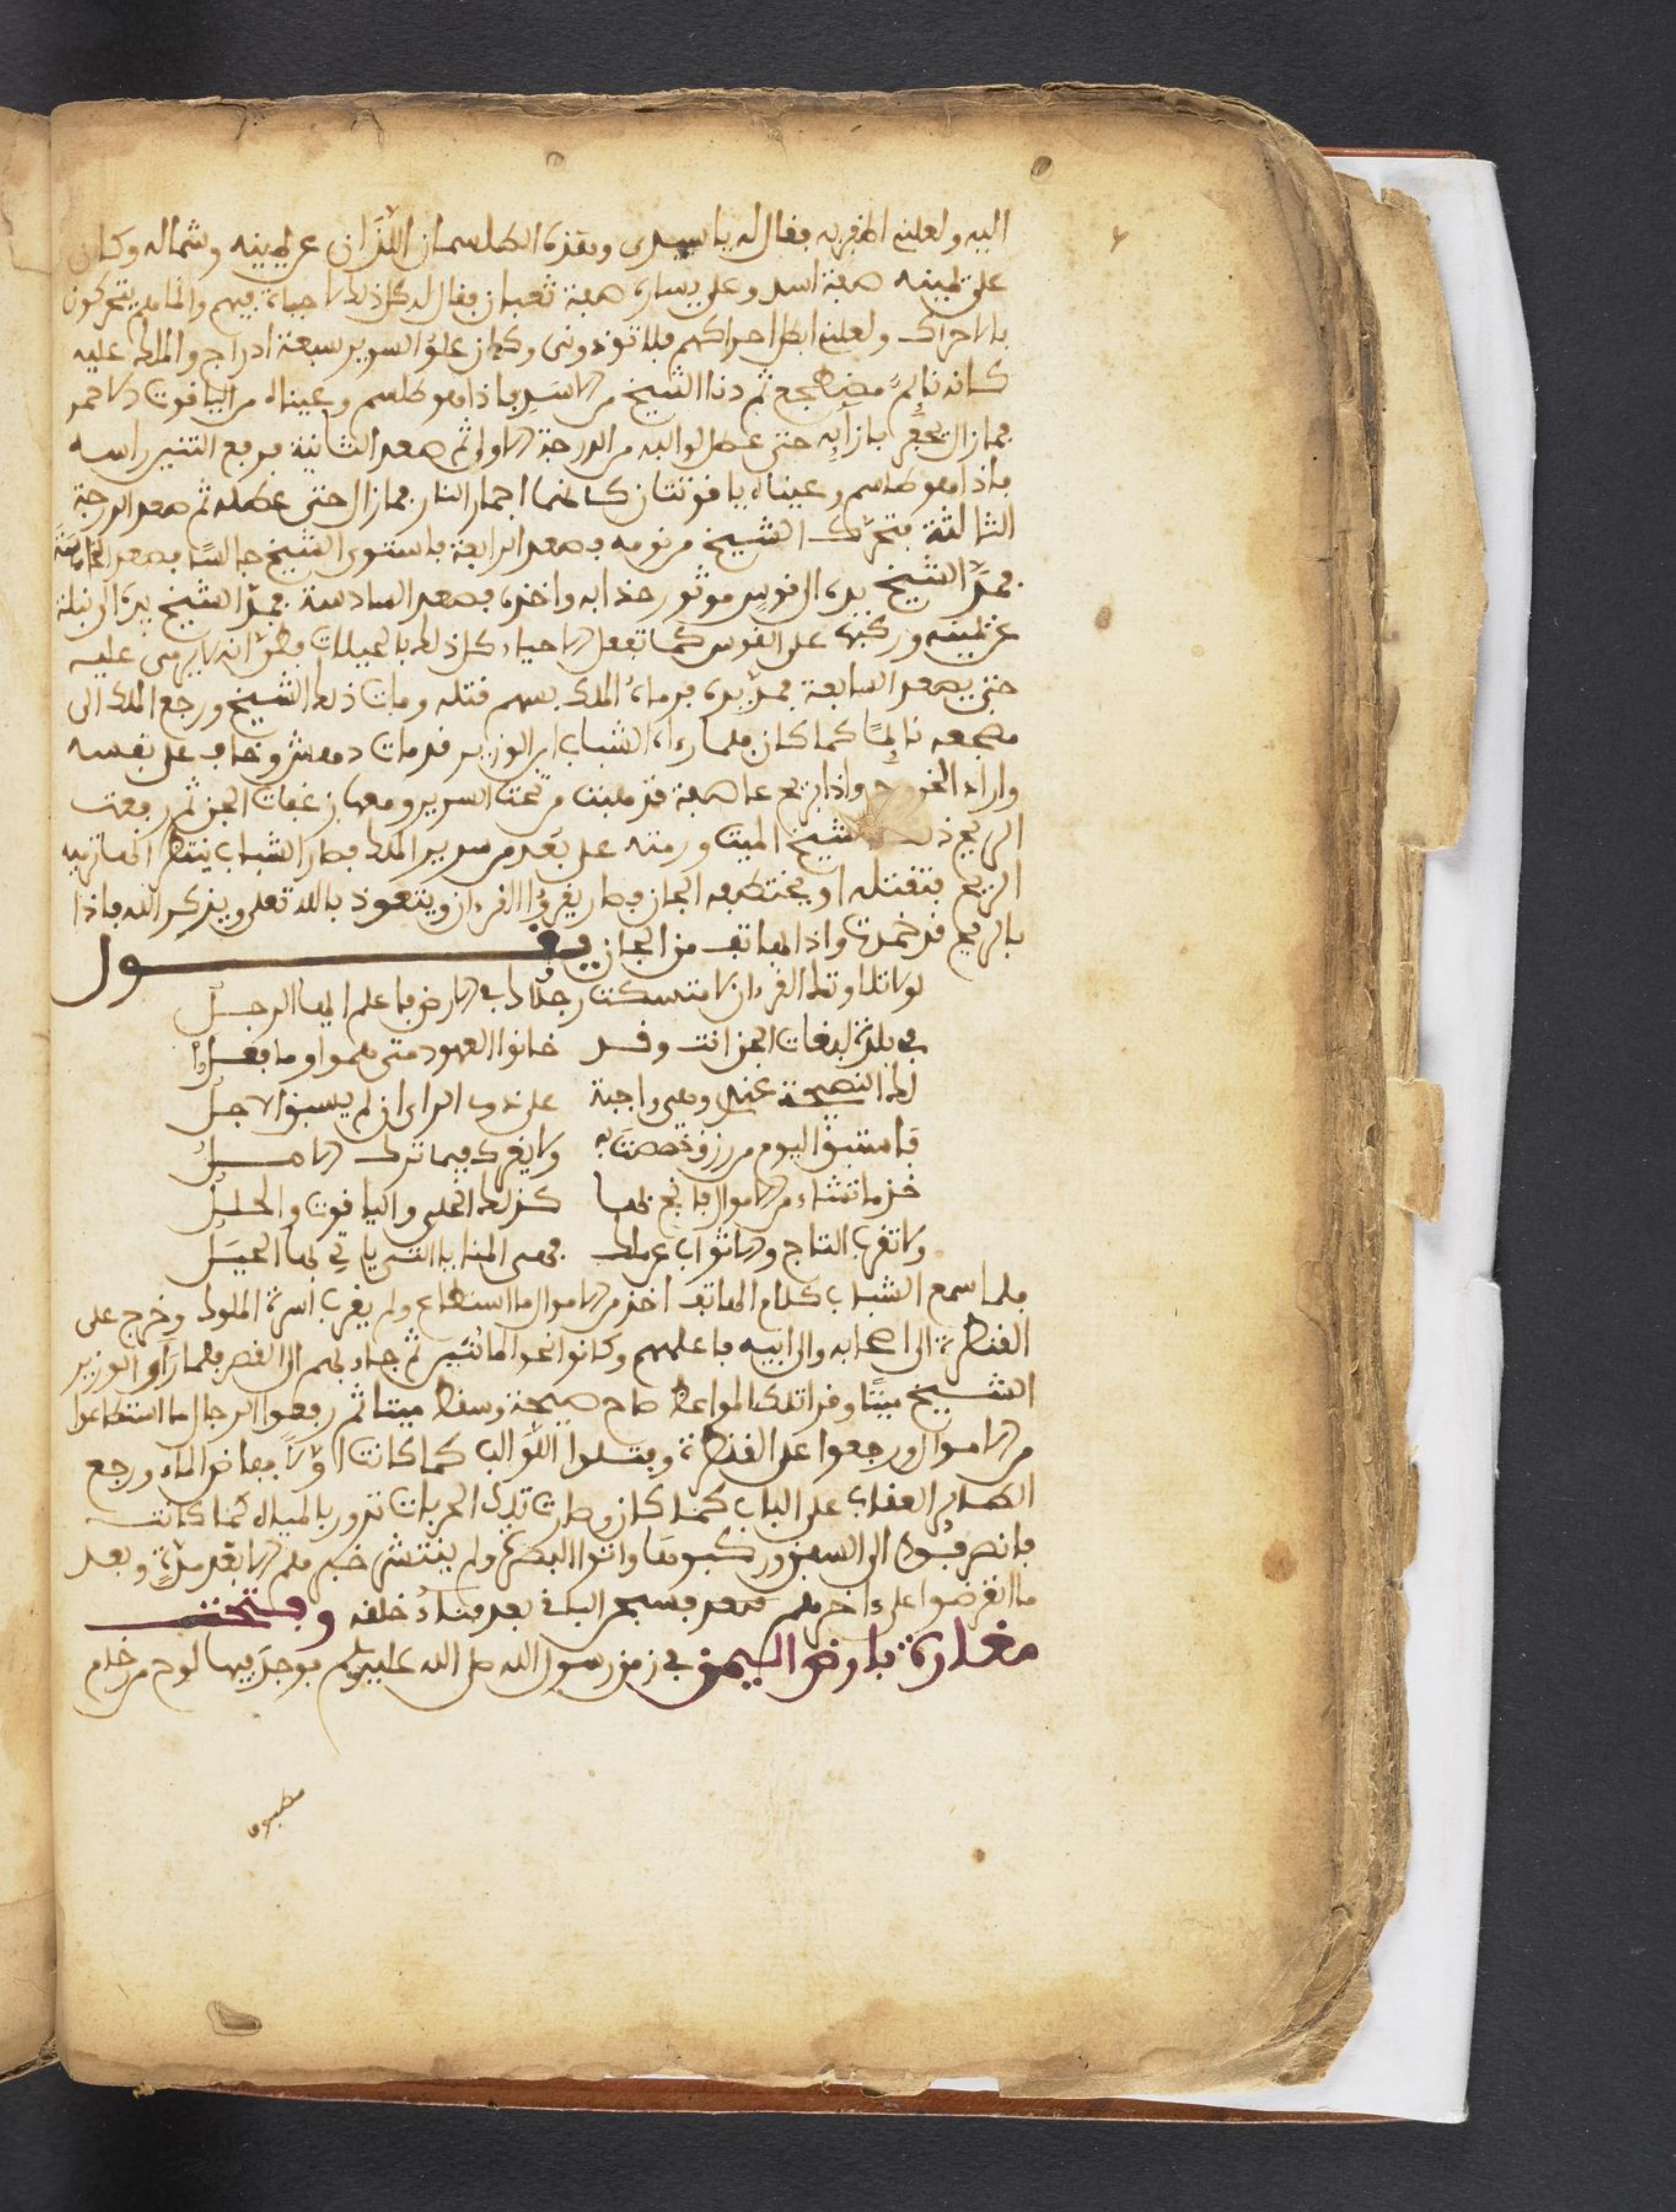 اليه ولعلني اظفر به فقال له يا سيدى وهذه الطلسمان اللذان عن يمينه وشماله وكان
على يمينه صفة اسد وعلى يساره صفة ثعبان فقال له كل ذلك لا حياة فيهم وانما هم يتحركون
بالاحراك ولعلني ابطل احراكهم فلا تؤذونى وكان علو السرير سبعة ادراج والملك عليه
كانه نائم مضطجع ثم دنا الشيخ من الاسد فاذا هو طلسم وعيناه من الياقوت الاحمر
فما زال يحفر بازايه حتى عطل لوالبه من الدرجة الاولى ثم صعد الثانية فرفع التنين راسه
فاذا هو طلسم وعيناه ياقوتتان كانهما اجمار النار فما زال حتى عطله ثم صعد الدرجة
الثالثة فتحرك الشيخ من نومه فصعد الرابعة فاستوى الشيخ جالسا فصعد الخامسة
فمد الشيخ يده الى قوس موثور حذاه واخذه فصعد السادسة فمد الشيخ يده الى نبلة
عن يمينه وركبها على القوس كما تفعل الاحياء كل ذلك بالحيلات فظن انه لا يرمى عليه
حتى يصعد السابعة فمد يده فرماه الملك بسهم قتله ومات ذلك الشيخ ورجع الملك الى
مضجعه نائما كما كان فلما رءاه الشباب ابن الوزير قد مات دهش وخاف على نفسه
واراد الخروج واذا بريح عاصفة قد هبت من تحت السرير ومعها زعقات الجن ثم رفعت
الريح ذلك الشيخ الميت ورمته على بعد من سرير الملك فصار الشباب ينتظر انها تاتيه
الريح فتقتله او يختطفه الجان فصار يقرؤا القرءان ويتعوذ بالله تعلى ويذكر الله فاذا
بالريح قد خمدت واذا الهاتف من الجان يقول
لولا تلاوتك القرءان لا متسكت رجلاك في الارض فاعلم ايها الرجل
في بلدة لبغات الجن انت وقد خانوا العهود متى هموا وما فعلوا
لك النصيحة عندى وهى واجبة على ذوى الراى ان لم يسبق الاجل
فاستبق اليوم من رزق خصصت به ولا يغرك فيما ترك الامل
خذ ما تشاء من الاموال فانج بها كذلك الحلى والياقوت والحلل
ولا تقرب التاج والاثواب عن ملك فهى المنايا التى ياتي بها الحيل
فلما سمع الشباب كلام الهاتف اخذ من الاموال ما استطاع ولم يقرب اسرة الملوك وخرج على
القنطرة الى اصحابه والى ابيه فاعلمهم وكانوا نحوا المائتين ثم جاء بهم الى القصر فلما راو الوزير
الشيخ ميتا وقرا تلك المواعظ صاح صيحة وسقط ميتا ثم رفعوا الرجال ما استطاعوا
من الاموال ورجعوا على القنطرة وفتلوا اللوالب كما كانت اولا ففاض الماء ورجع
الطاير العقاب على الباب كما كان وصارت تلك الحربات تدور بالمياه كما كانت
فانصرفوا الى السفن وركبوها واتوا البصرة ولم ينتشر خبرهم الا بعد مدة وبعد
ما انقرضوا على ءاخرهم فسبحن الباقي بعد فناء خلقه وفتحت
مغارة بارض اليمن في زمن رسول الله صلى الله عليه وسلم فوجد فيها لوح من رخام